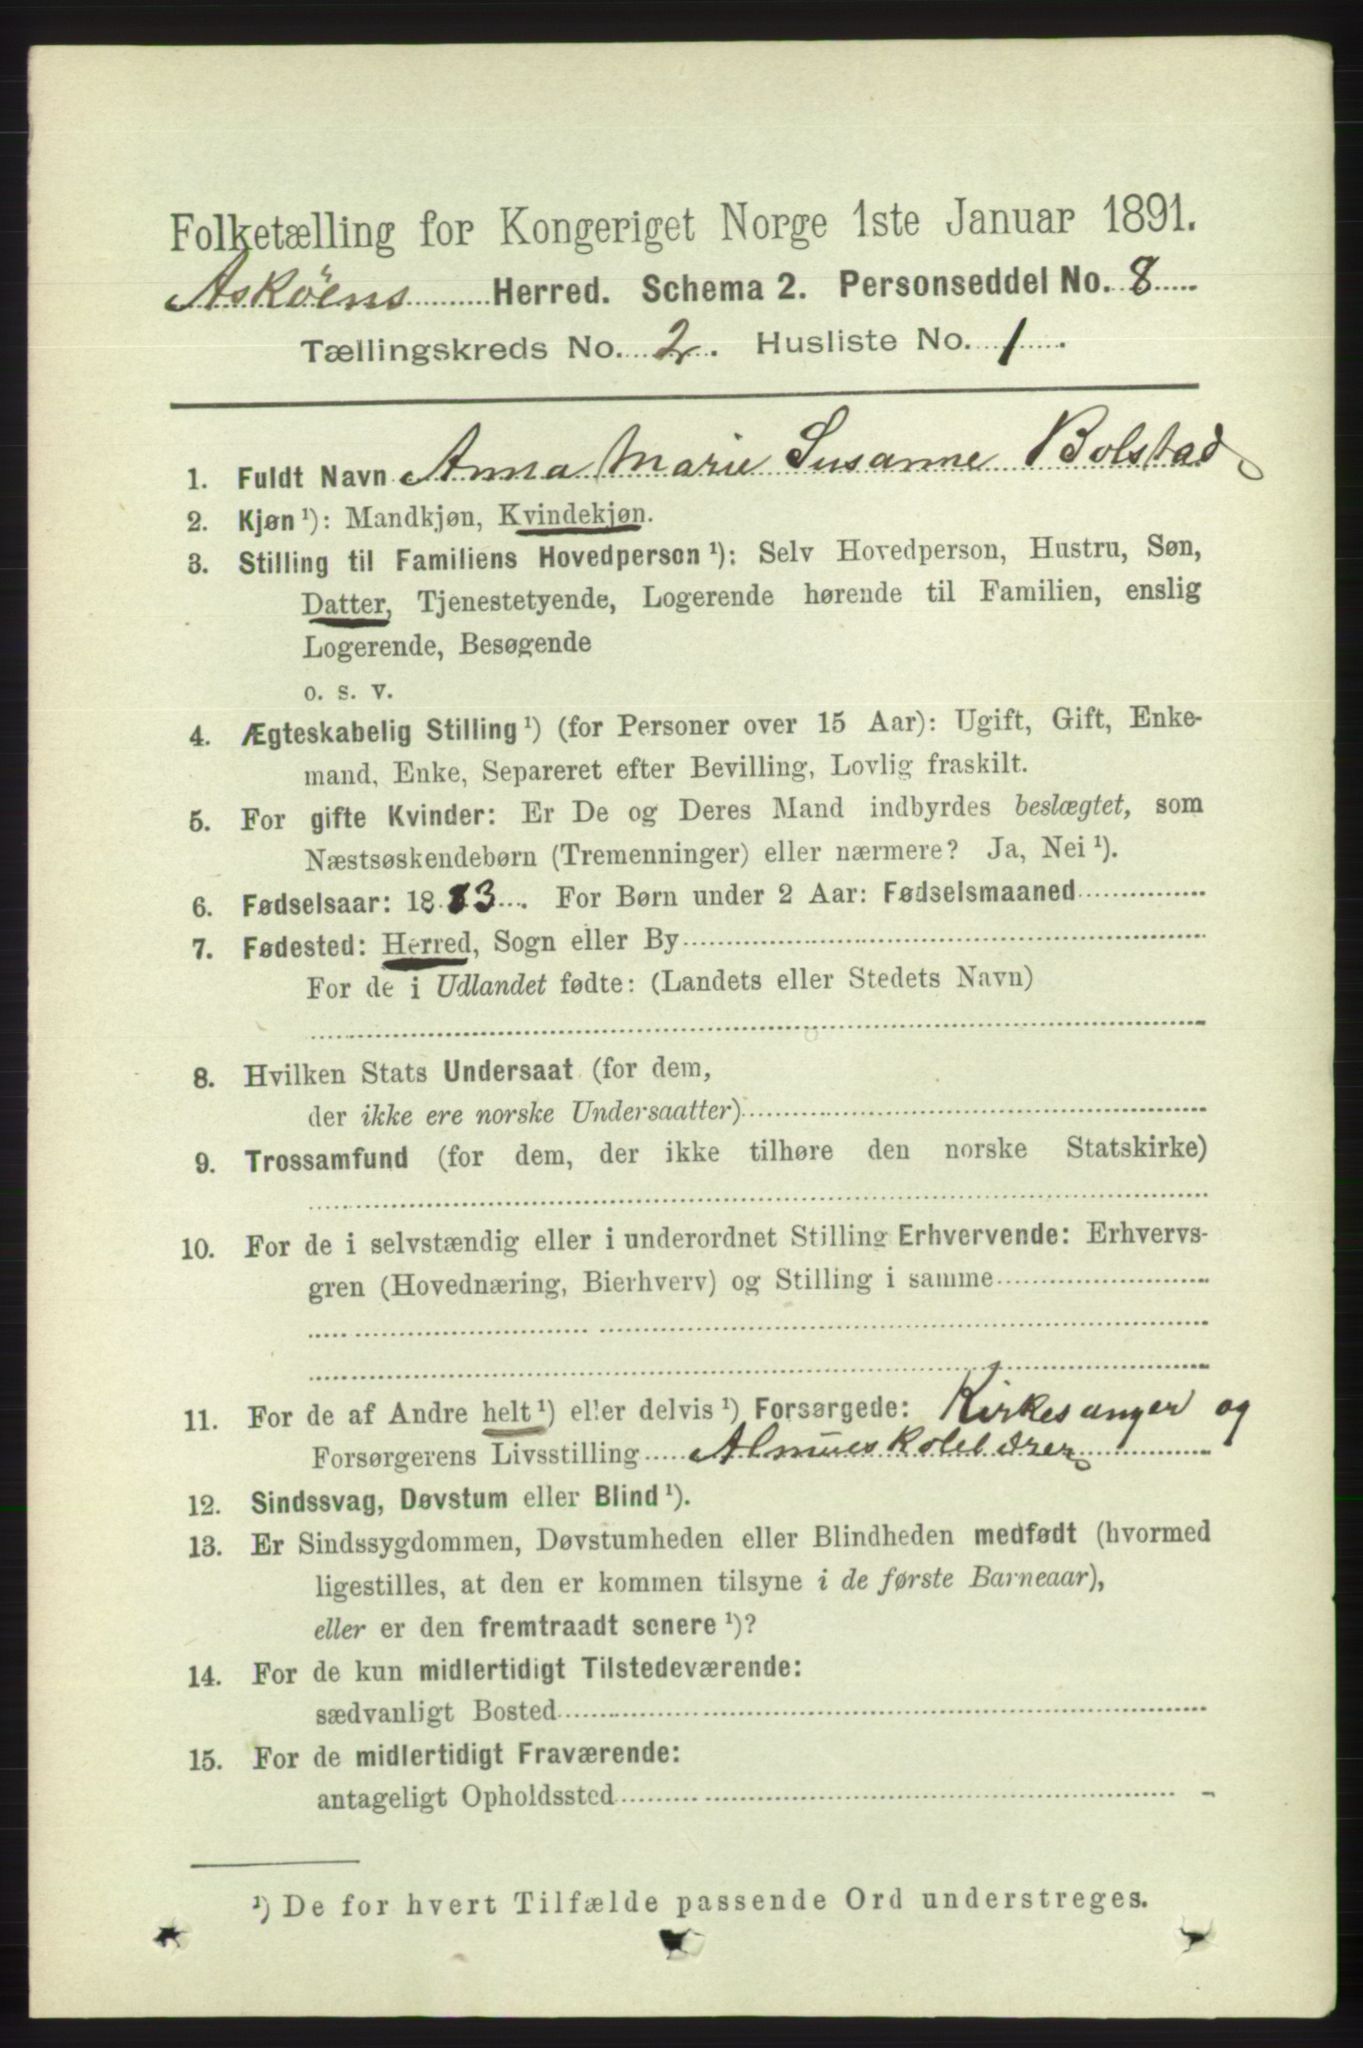 Folketælling for Kongeriget Norge 1ste Januar 1891.
Askøens Herred. Schema 2. Personseddel No. 8
Tællingskreds No. 2. Husliste No. 1.
1. Fuldt Navn Anna Marie Susanne Bolstad
2. Kjøn ¹): Mandkjøn, Kvindekjøn.
3. Stilling til Familiens Hovedperson ¹): Selv Hovedperson, Hustru, Søn,
Datter, Tjenestetyende, Logerende hørende til Familien, enslig
Logerende, Besøgende
o. s. v.
4. Ægteskabelig Stilling ¹) (for Personer over 15 Aar): Ugift, Gift, Enke-
mand, Enke, Separeret efter Bevilling, Lovlig fraskilt.
5. For gifte Kvinder: Er De og Deres Mand indbyrdes beslægtet, som
Næstsøskendebørn (Tremenninger) eller nærmere? Ja, Nei ¹).
6. Fødselsaar: 1883. For Børn under 2 Aar: Fødselsmaaned
7. Fødested: Herred, Sogn eller By
For de i Udlandet fødte: (Landets eller Stedets Navn)
8. Hvilken Stats Undersaat (for dem,
der ikke ere norske Undersaatter)
9. Trossamfund (for dem, der ikke tilhøre den norske Statskirke)
10. For de i selvstændig eller i underordnet Stilling Erhvervende: Erhvervs-
gren (Hovednæring, Bierhverv) og Stilling i samme
11. For de af Andre helt ¹) eller delvis ¹) Forsørgede: Kirkesanger og
Forsørgerens Livsstilling Almueskolelærer
12. Sindssvag, Døvstum eller Blind ¹).
13. Er Sindssygdommen, Døvstumheden eller Blindheden medfødt (hvormed
ligestilles, at den er kommen tilsyne i de første Barneaar),
eller er den fremtraadt senere ¹)?
14. For de kun midlertidigt Tilstedeværende:
sædvanligt Bosted
15. For de midlertidigt Fraværende:
antageligt Opholdssted
¹) De for hvert Tilfælde passende Ord understreges.